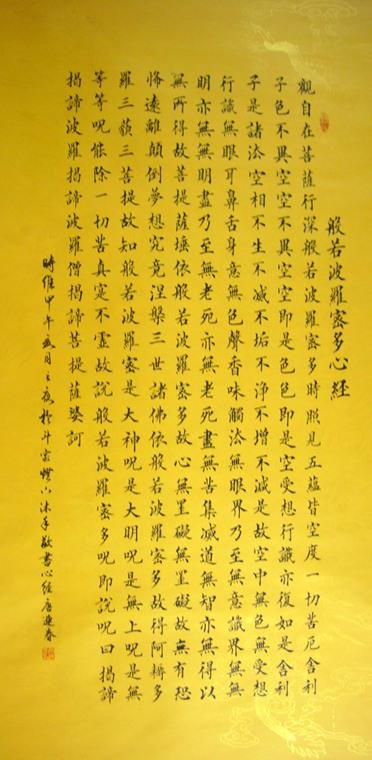 般若波羅密多心經
觀自在菩薩行深般若波羅密多時照見五蘊皆空度一切苦厄舍利
子色不異空空不異空空即是色色即是空受想行識亦復如是舍利
子是諸法空相不生不滅不垢不淨不增不減是故空中無色無受想
行識無眼耳鼻舌身意無色聲香味觸法無眼界乃至無意識界無無
明亦無無明盡乃至無老死亦無老死盡無苦集滅道無智亦無得以
無所得故菩提薩埵依般若波羅密多故心無罣礙無罣礙故無有恐
怖遠離顛倒夢想究竟涅槃三世諸佛依般若波羅密多故得阿耨多
羅三藐三菩提故知般若波羅密是大神呪是大明呪是無上呪是無
等等呪能除一切苦真寔不虛故說般若波羅密多呪即說呪曰揭諦
揭諦波羅揭諦波羅僧揭諦菩提薩婆訶
時維甲午月之夜於斗室燈下沐手敬書心經唐迎春